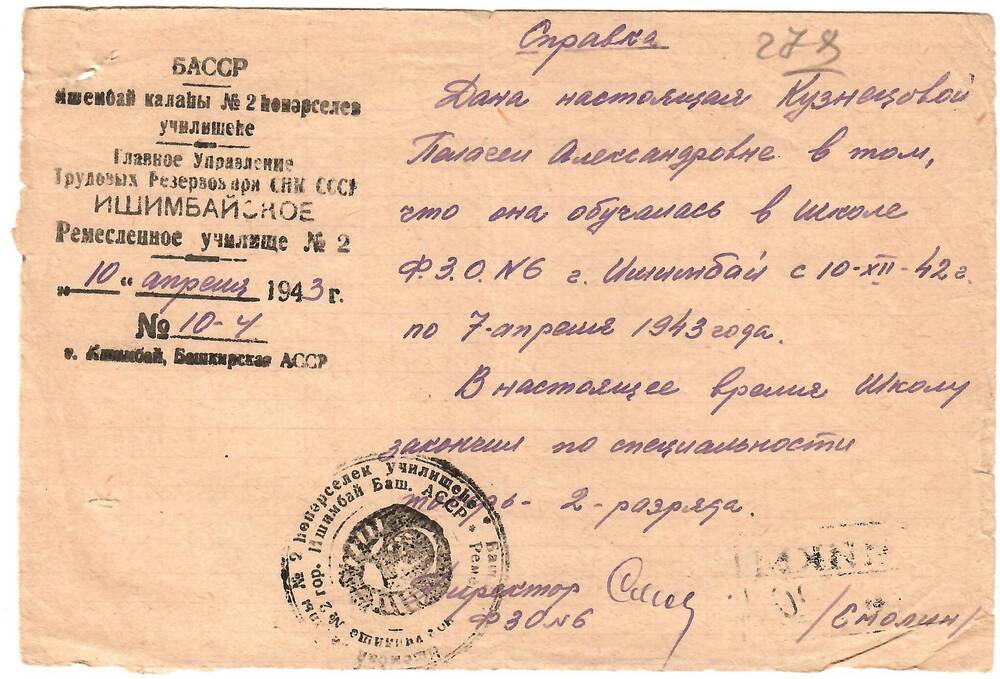 БАССР
Ишембай калаһы № 2 һөнәрселек
училищеһе
Главное Управление
Трудовых Резервов при СНК СССР
ИШИМБАЙСКОЕ
Ремесленное училище № 2
„10“ апреля 1943 г.
№ 10-4
г. Ишимбай, Башкирская АССР
Справка
278
Дана настоящая Кузнецовой
Пелагеи Александровне в том,
что она обучалась в школе
Ф.З.О. N6 г. Ишимбай с 10-XII-42 г.
по 7-апреля 1943 года.
В настоящее время Школу
закончил по специальности
токарь- 2-разряда.
Директор
ФЗО N6 /Смолин/
һөнәрселек училищеһе
№ 2 гор. Ишимбай Баш. АССР